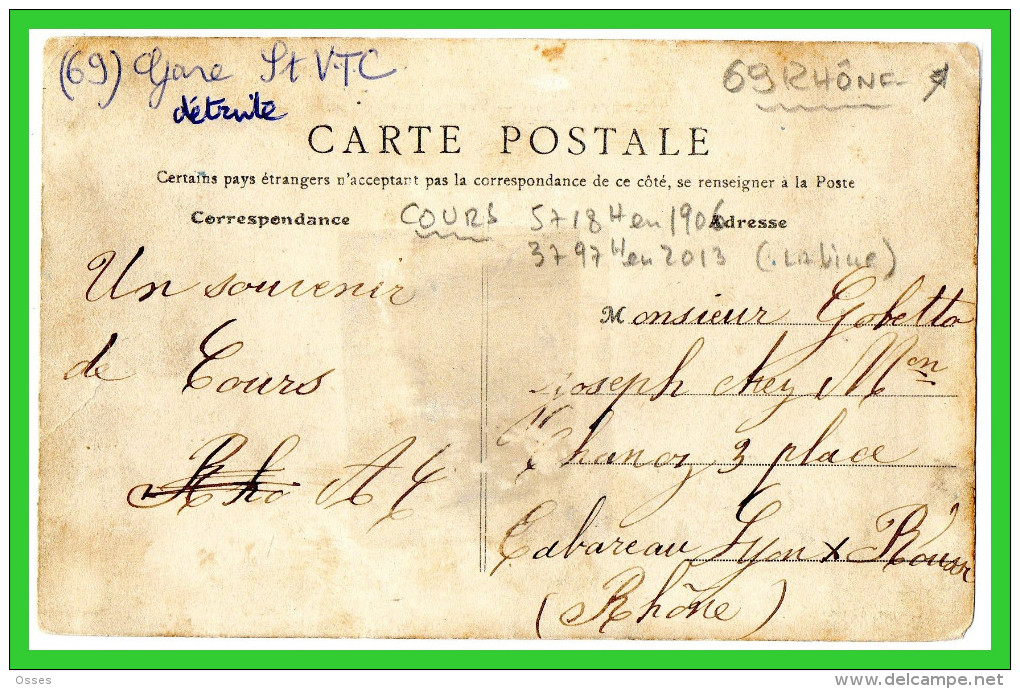 (69) Gare St V-T-C
détruite
69 RHÔNE
CARTE POSTALE
Certains pays étrangers n'acceptent pas la correspondance de ce côté, se renseigner à la Poste
Correspondance
COURS 5718 H en 1906
Adresse
3797 H en 2013 (
Un souvenir
de Cours
Rho A C
Monsieur Gobetto
Joseph chez Mon
Chanoz 3 place
Cabareau Lyon x
(Rhône)
Osses
www.delcampe.net